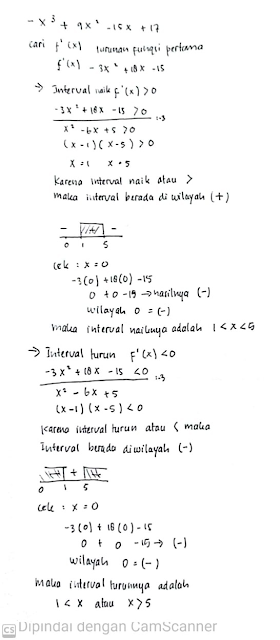 - x³ + 9x² - 15x + 17
cari f'(x) turunan fungsi pertama
f'(x) - 3x² + 18x - 15
→ Interval naik f'(x) > 0
-3x² + 18x - 15 > 0 :-3
x² - 6x + 5 > 0
(x - 1)(x - 5) > 0
x = 1 x = 5
Karena interval naik atau >
maka interval berada di wilayah (+)
- + -
0 1 5
cek : x = 0
-3(0) + 18(0) - 15
0 + 0 - 15 → hasilnya (-)
wilayah 0 = (-)
maka interval naiknya adalah 1 < x < 5
→ Interval turun f'(x) < 0
-3x² + 18x - 15 < 0 :-3
x² - 6x + 5
(x - 1) (x - 5) < 0
karena interval turun atau < maka
Interval berada diwilayah (-)
+
0 1 5
cek : x = 0
-3(0) + 18(0) - 15
0 + 0 - 15 → (-)
wilayah 0 = (-)
maka interval turunnya adalah
1 < x atau x > 5
CS Dipindai dengan CamScanner